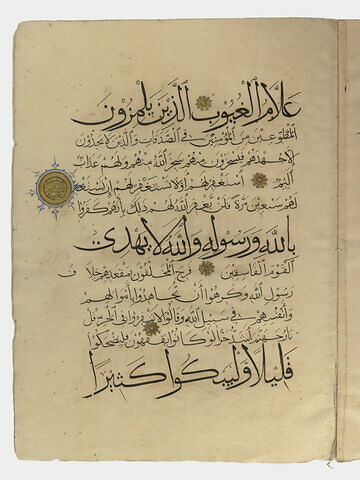 علام الغيوب الذين يلمزون
المطوعين من المؤمنين في الصدقات والذين لا يجدون
الا جهدهم فيسخرون منهم سخر الله منهم ولهم عذاب
اليم استغفر لهم او لا تستغفر لهم ان تستغفر
لهم سبعين مرة فلن يغفر الله لهم ذلك بانهم كفروا
بالله ورسوله والله لا يهدي
القوم الفاسقين فرح المخلفون بمقعدهم خلاف
رسول الله وكرهوا ان يجاهدوا باموالهم
وانفسهم في سبيل الله وقالوا لا تنفروا في الحر قل
نار جهنم اشد حرا لو كانوا يفقهون فليضحكوا
قليلا وليبكوا كثيرا